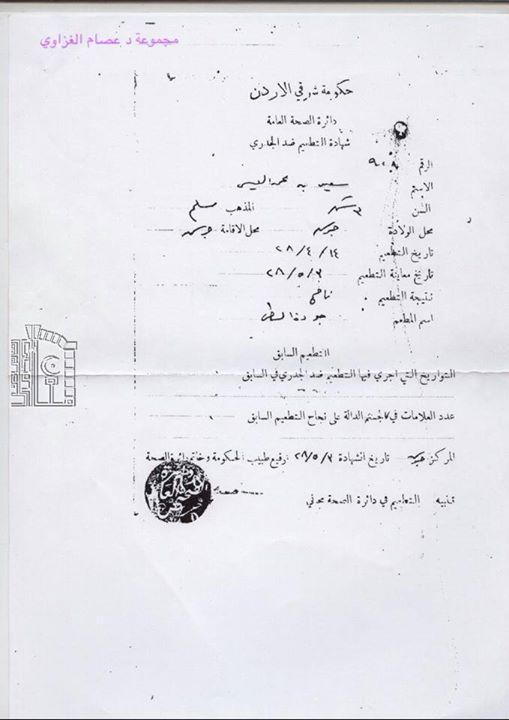 مجموعة د عصام الغزاوي
حكومة شرقي الاردن
دائرة الصحة العامة
شهادة التطعيم ضد الجدري
الرقم
الاسم محمد
السن ٣ المذهب مسلم
محل الولادة جرش محل الاقامة جرش
تاريخ التطعيم ١٤ / ٤ / ٢٨
تاريخ معاينة التطعيم ٦ / ٥ / ٢٨
نتيجة التطعيم ناجح
اسم المطعم جودة
التطعيم السابق
التواريخ التي اجري فيها التطعيم ضد الجدري في السابق
عدد العلامات في الجسم الدالة على نجاح التطعيم السابق
المركز جرش تاريخ الشهادة ٦ / ٥ / ٢٨ توقيع طبيب الحكومة وخاتم دائرة الصحة
تنبيه التطعيم في دائرة الصحة مجاني